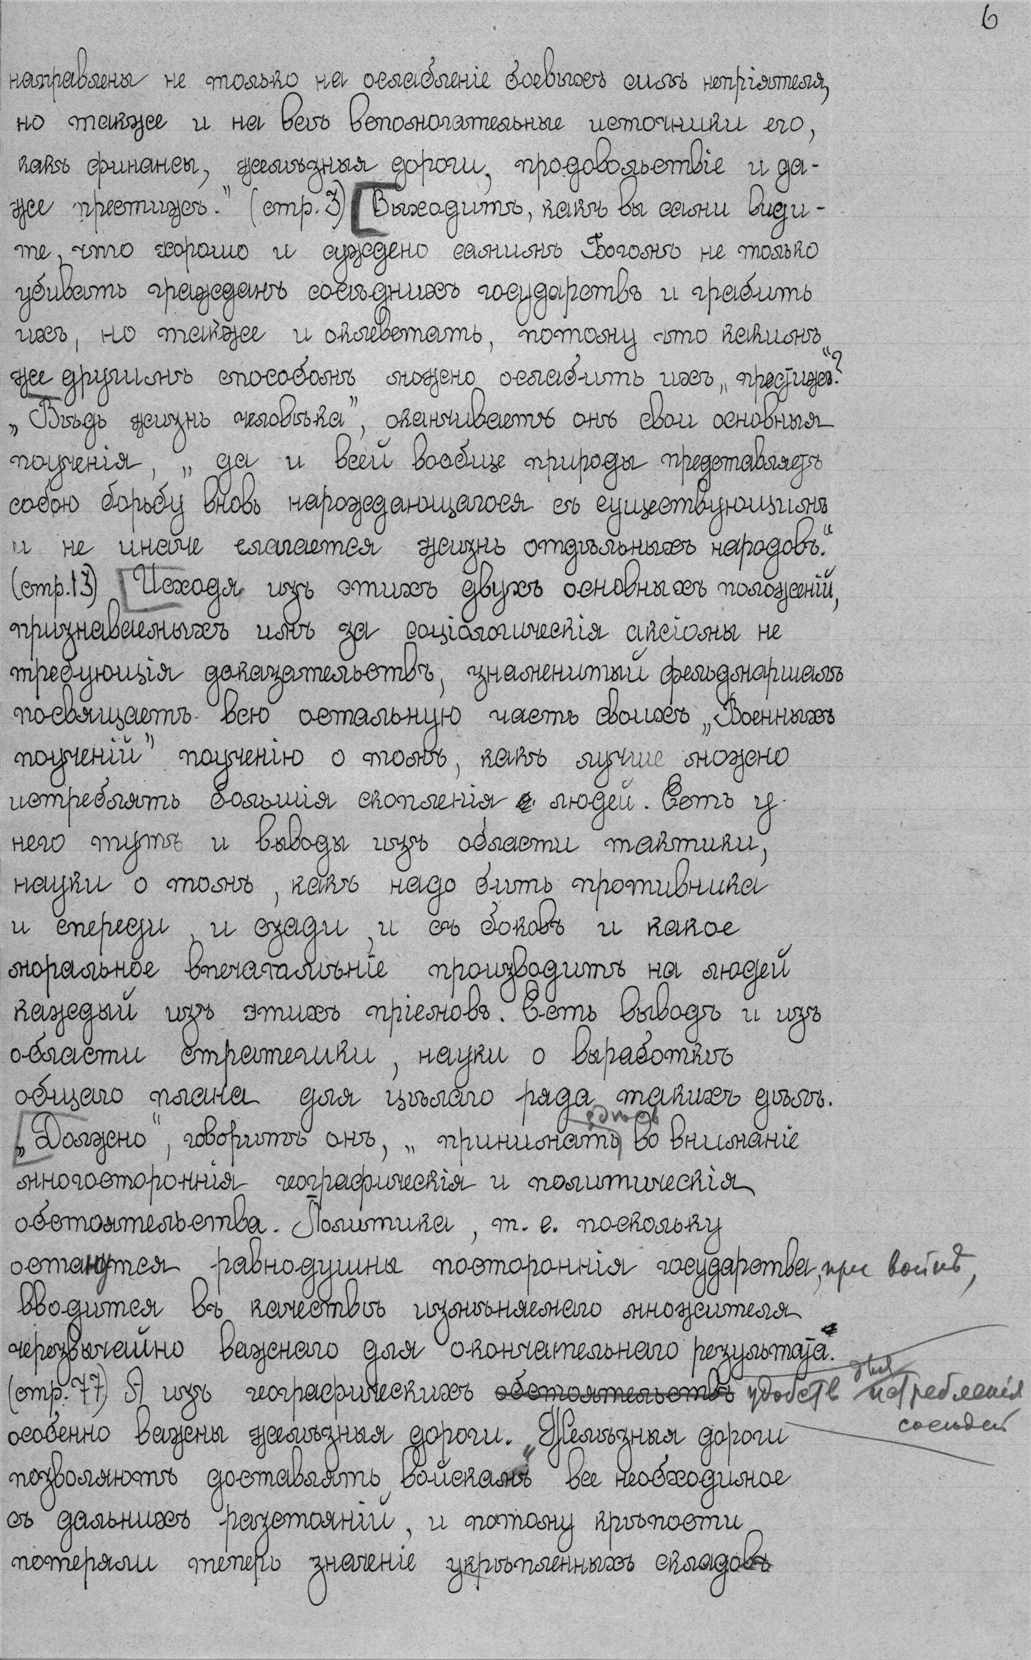 6
направлены не только на ослабленіе боевыхъ силъ непріятеля,
но также и на всѣ вспомогательные источники его,
какъ финансы, желѣзныя дороги, продовольствіе и да-
же престижъ." (стр. 3) [Выходитъ, какъ вы сами види-
те, что хорошо и суждено самимъ Богомъ не только
убивать гражданъ сосѣднихъ государствъ и грабить
ихъ, но также и оклеветать, потому что какимъ
же другимъ способомъ можно ослабить ихъ „престижъ"?
„Вѣдь жизнь человѣка", оканчиваетъ онъ свои основныя
поученія, „да и всей вообще природы представляетъ
собою борьбу вновь нарождающагося съ существующимъ
и не иначе слагается жизнь отдѣльныхъ народовъ."
(стр. 13) [Исходя изъ этихъ двухъ основныхъ положеній,
признаваемыхъ имъ за соціологическія аксіомы не
требующія доказательствъ, знаменитый фельдмаршалъ
посвящаетъ всю остальную часть своихъ „Военныхъ
поученій" поученію о томъ, какъ лучше можно
истреблять большія скопленія людей. Есть у
него тутъ и выводы изъ области тактики,
науки о томъ, какъ надо бить противника
и спереди, и сзади, и съ боковъ и какое
моральное впечатлѣніе производитъ на людей
каждый изъ этихъ пріемовъ. Есть выводъ и изъ
области стратегики, науки о выработкѣ
общаго плана для цѣлаго ряда такихъ дѣлъ.
[„Должно", говоритъ онъ, „принимать здѣсь во вниманіе
многостороннія географическія и политическія
обстоятельства. Политика, т. е. поскольку
останутся равнодушны постороннія государства, при войнѣ,
вводится въ качествѣ измѣняемаго множителя
черезвычайно важнаго для окончательнаго результата.
(стр. 77) А изъ географическихъ обстоятельствъ удобств для истребленія
сосѣдей
особенно важны желѣзныя дороги. „Желѣзныя дороги
позволяютъ доставлять войскамъ все необходимое
съ дальнихъ разстояній, и потому крѣпости
потеряли теперь значеніе укрѣпленныхъ складовъ